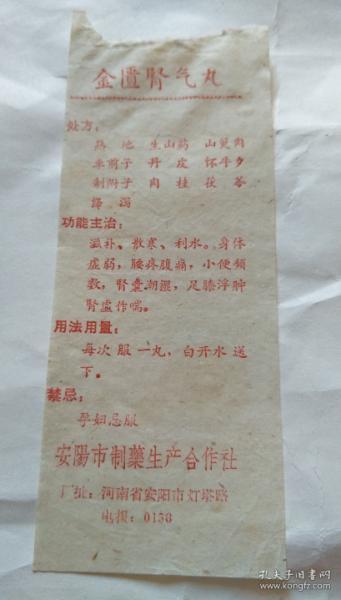 金匱腎气丸
处方：
熟 地 生山药 山萸肉
车前子 丹 皮 怀牛夕
制附子 肉 桂 茯 苓
泽 泻
功能主治：
滋补、散寒、利水。身体
虚弱，腰疼腹痛，小便频
数，腎囊潮湿，足膝浮肿
腎虚作喘。
用法用量：
每次服一丸，白开水送
下。
禁忌：
孕妇忌服
安陽市制藥生产合作社
厂址：河南省安阳市灯塔路
电报：0138
孔夫子旧书网